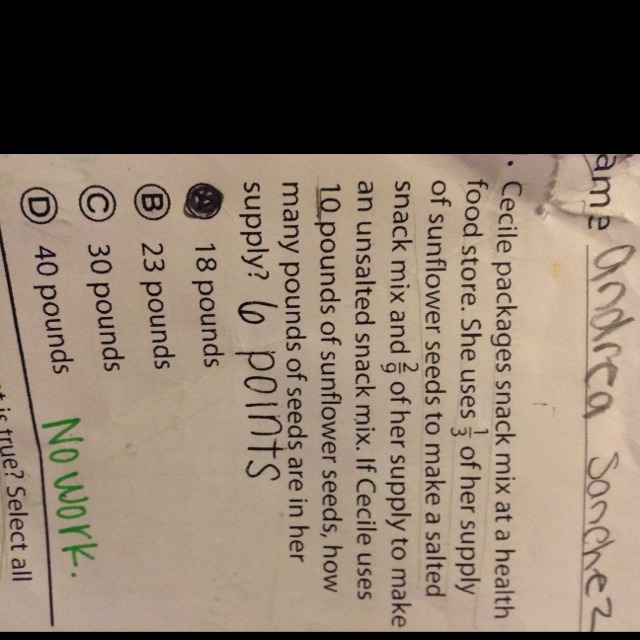 ame Andrea Sanchez
• Cecile packages snack mix at a health
food store. She uses 1/3 of her supply
of sunflower seeds to make a salted
snack mix and 2/9 of her supply to make
an unsalted snack mix. If Cecile uses
10 pounds of sunflower seeds, how
many pounds of seeds are in her
supply? 6 points
A 18 pounds
B 23 pounds
C 30 pounds
D 40 pounds
No work.
t is true? Select all